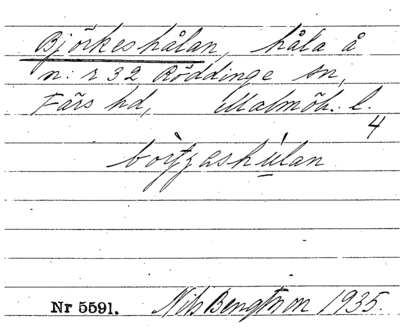 Björkeshålan, håla å
n:r 32 Röddinge sn,
Färs hd, Malmöh. l.
4
Nr 5591. Nils Bengtson 1935.